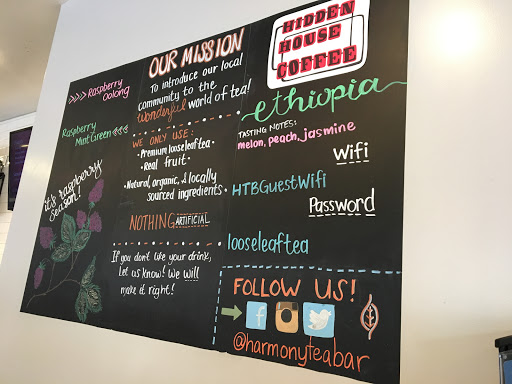 Raspberry
Oolong
Raspberry
Mint Green
it's raspberry
season!
OUR MISSION
To introduce our local
community to the
wonderful world of tea!
WE ONLY USE:
• Premium looseleaf tea •
• Real fruit •
• Natural, organic, & locally
sourced ingredients •
NOTHING ARTIFICIAL
If you don't like your drink,
let us know! We will
make it right!
HIDDEN
HOUSE
COFFEE
ethiopia
TASTING NOTES:
melon, peach, jasmine
Wifi
HTBGuestWifi
Password
looseleaftea
FOLLOW US!
@harmonyteabar